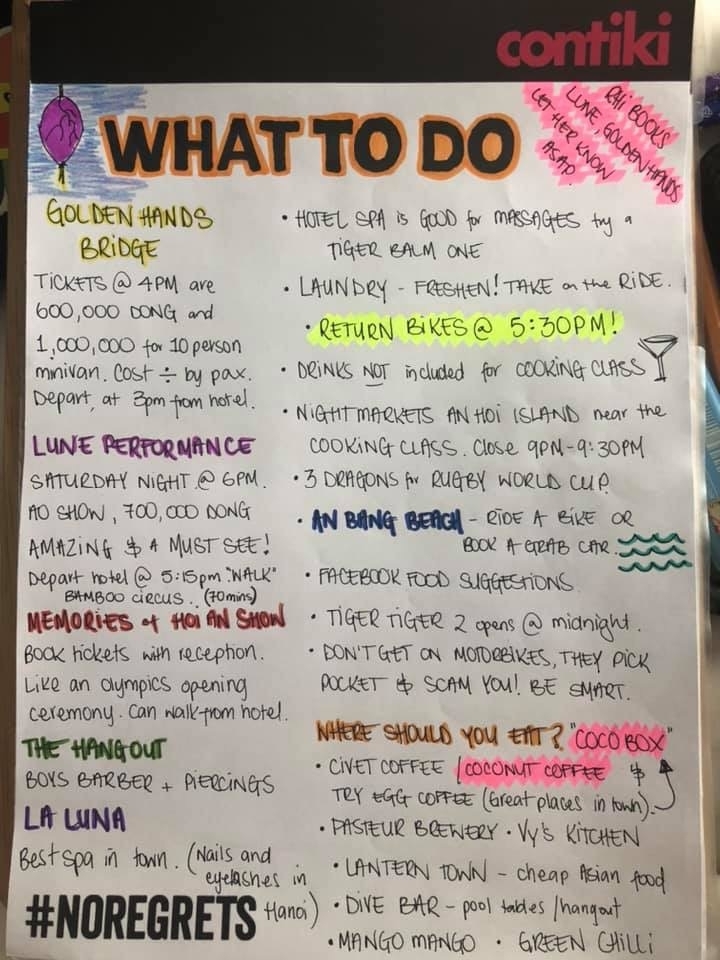 contiki
WHAT TO DO
RHI BOOKS
LUNE, GOLDEN HANDS
LET HER KNOW
ASAP.
GOLDEN HANDS
BRIDGE
TICKETS @ 4PM are
600,000 DONG and
1,000,000 for 10 person
minivan. Cost ÷ by pax.
Depart, at 3pm from hotel.
LUNE PERFORMANCE
SATURDAY NIGHT @ 6PM.
AO SHOW, 700,000 DONG
AMAZING & A MUST SEE!
Depart hotel @ 5:15pm "WALK"
BAMBOO CIRCUS.. (70mins)
MEMORIES of HOI AN SHOW
BOOK tickets with reception.
Like an olympics opening
ceremony. Can walk from hotel.
THE HANGOUT
BOYS BARBER + PIERCINGS
LA LUNA
Best spa in town. (Nails and
eyelashes in
Hanoi)
#NOREGRETS
• HOTEL SPA is GOOD for MASSAGES try a
TIGER BALM ONE
• LAUNDRY - FRESHEN! TAKE on the RIDE.
• RETURN BIKES @ 5:30PM!
• DRINKS NOT included for COOKING CLASS
• NIGHT MARKETS AN HOI ISLAND near the
COOKING CLASS. Close 9PM-9:30PM
• 3 DRAGONS for RUGBY WORLD CUP.
• AN BANG BEACH - RIDE A BIKE OR
BOOK A GRAB CAR.
• FACEBOOK FOOD SUGGESTIONS.
• TIGER TIGER 2 opens @ midnight.
• DON'T GET ON MOTORBIKES, THEY PICK
POCKET & SCAM YOU! BE SMART.
WHERE SHOULD YOU EAT? "COCO BOX"
• CIVET COFFEE / COCONUT COFFEE &
TRY EGG COFFEE (Great places in town).
• PASTEUR BREWERY • VY'S KITCHEN
• LANTERN TOWN - cheap Asian food
• DIVE BAR - pool tables / hangout
• MANGO MANGO • GREEN CHILLI